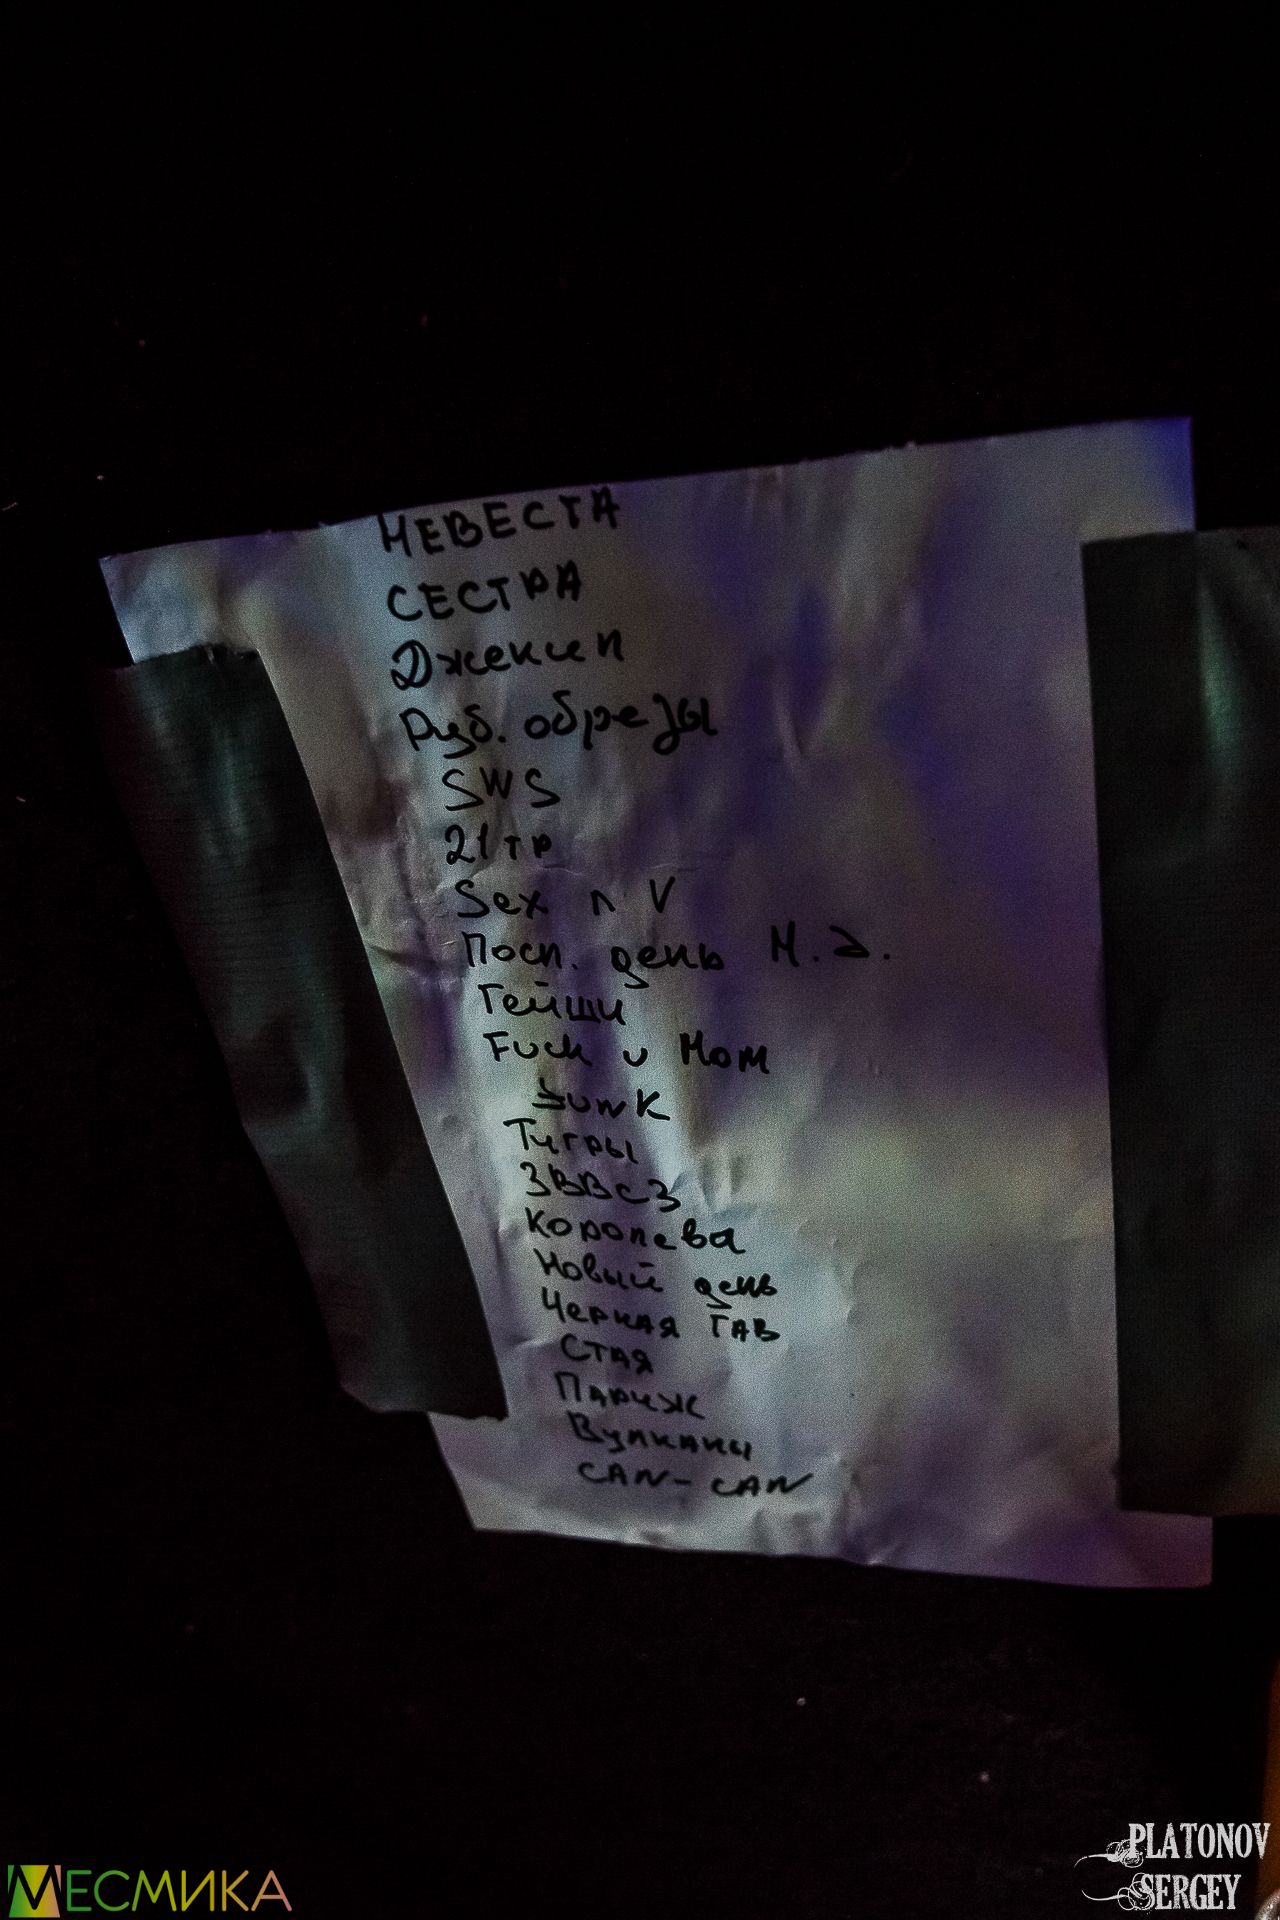 НЕВЕСТА
СЕСТРА
Джекил
Руб. обрезы
SWS
21 тр
Sex n V
Посл. день М.Э.
Гейши
Fuck u Mom
Junk
Тигры
ЗВВСЗ
Королева
Новый день
Черная ГАВ
СТАЯ
ПАРИЖ
Вулканы
CAN-CAN
МЕСМИКА
PLATONOV
SERGEY